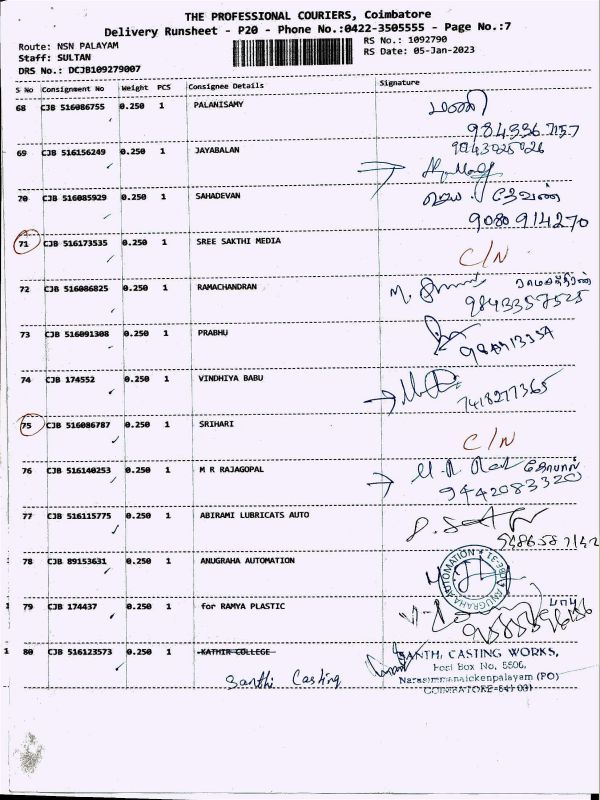 THE PROFESSIONAL COURIERS, Coimbatore
Delivery Runsheet - P20 - Phone No.:0422-3505555 - Page No.:7
Route: NSN PALAYAM
RS No.: 1092790
Staff: SULTAN
RS Date: 05-Jan-2023
DRS No.: DCJB109279007
S No Consignment No Weight PCS Consignee Details Signature
68 CJB 516086755 0.250 1 PALANISAMY மணி
984336 7157
69 CJB 516156249 0.250 1 JAYABALAN 9843025026
70 CJB 516085929 0.250 1 SAHADEVAN தேவன்
9080914270
71 CJB 516173535 0.250 1 SREE SAKTHI MEDIA C/N
72 CJB 516086825 0.250 1 RAMACHANDRAN ராமசந்திரன்
9843357525
73 CJB 516091308 0.250 1 PRABHU
74 CJB 174552 0.250 1 VINDHIYA BABU 7418277365
75 CJB 516086787 0.250 1 SRIHARI C/N
76 CJB 516140253 0.250 1 M R RAJAGOPAL M. R. கோபால்
9442083320
77 CJB 516115775 0.250 1 ABIRAMI LUBRICATS AUTO
9486587142
78 CJB 89153631 0.250 1 ANUGRAHA AUTOMATION ANUGRAHA AUTOMATION
79 CJB 174437 0.250 1 for RAMYA PLASTIC பாபு
80 CJB 516123573 0.250 1 -KATHIR COLLEGE- SANTHI CASTING WORKS,
Santhi Casting Post Box No, 5506,
Narasimmanaickenpalayam (PO)
COIMBATORE-641 031